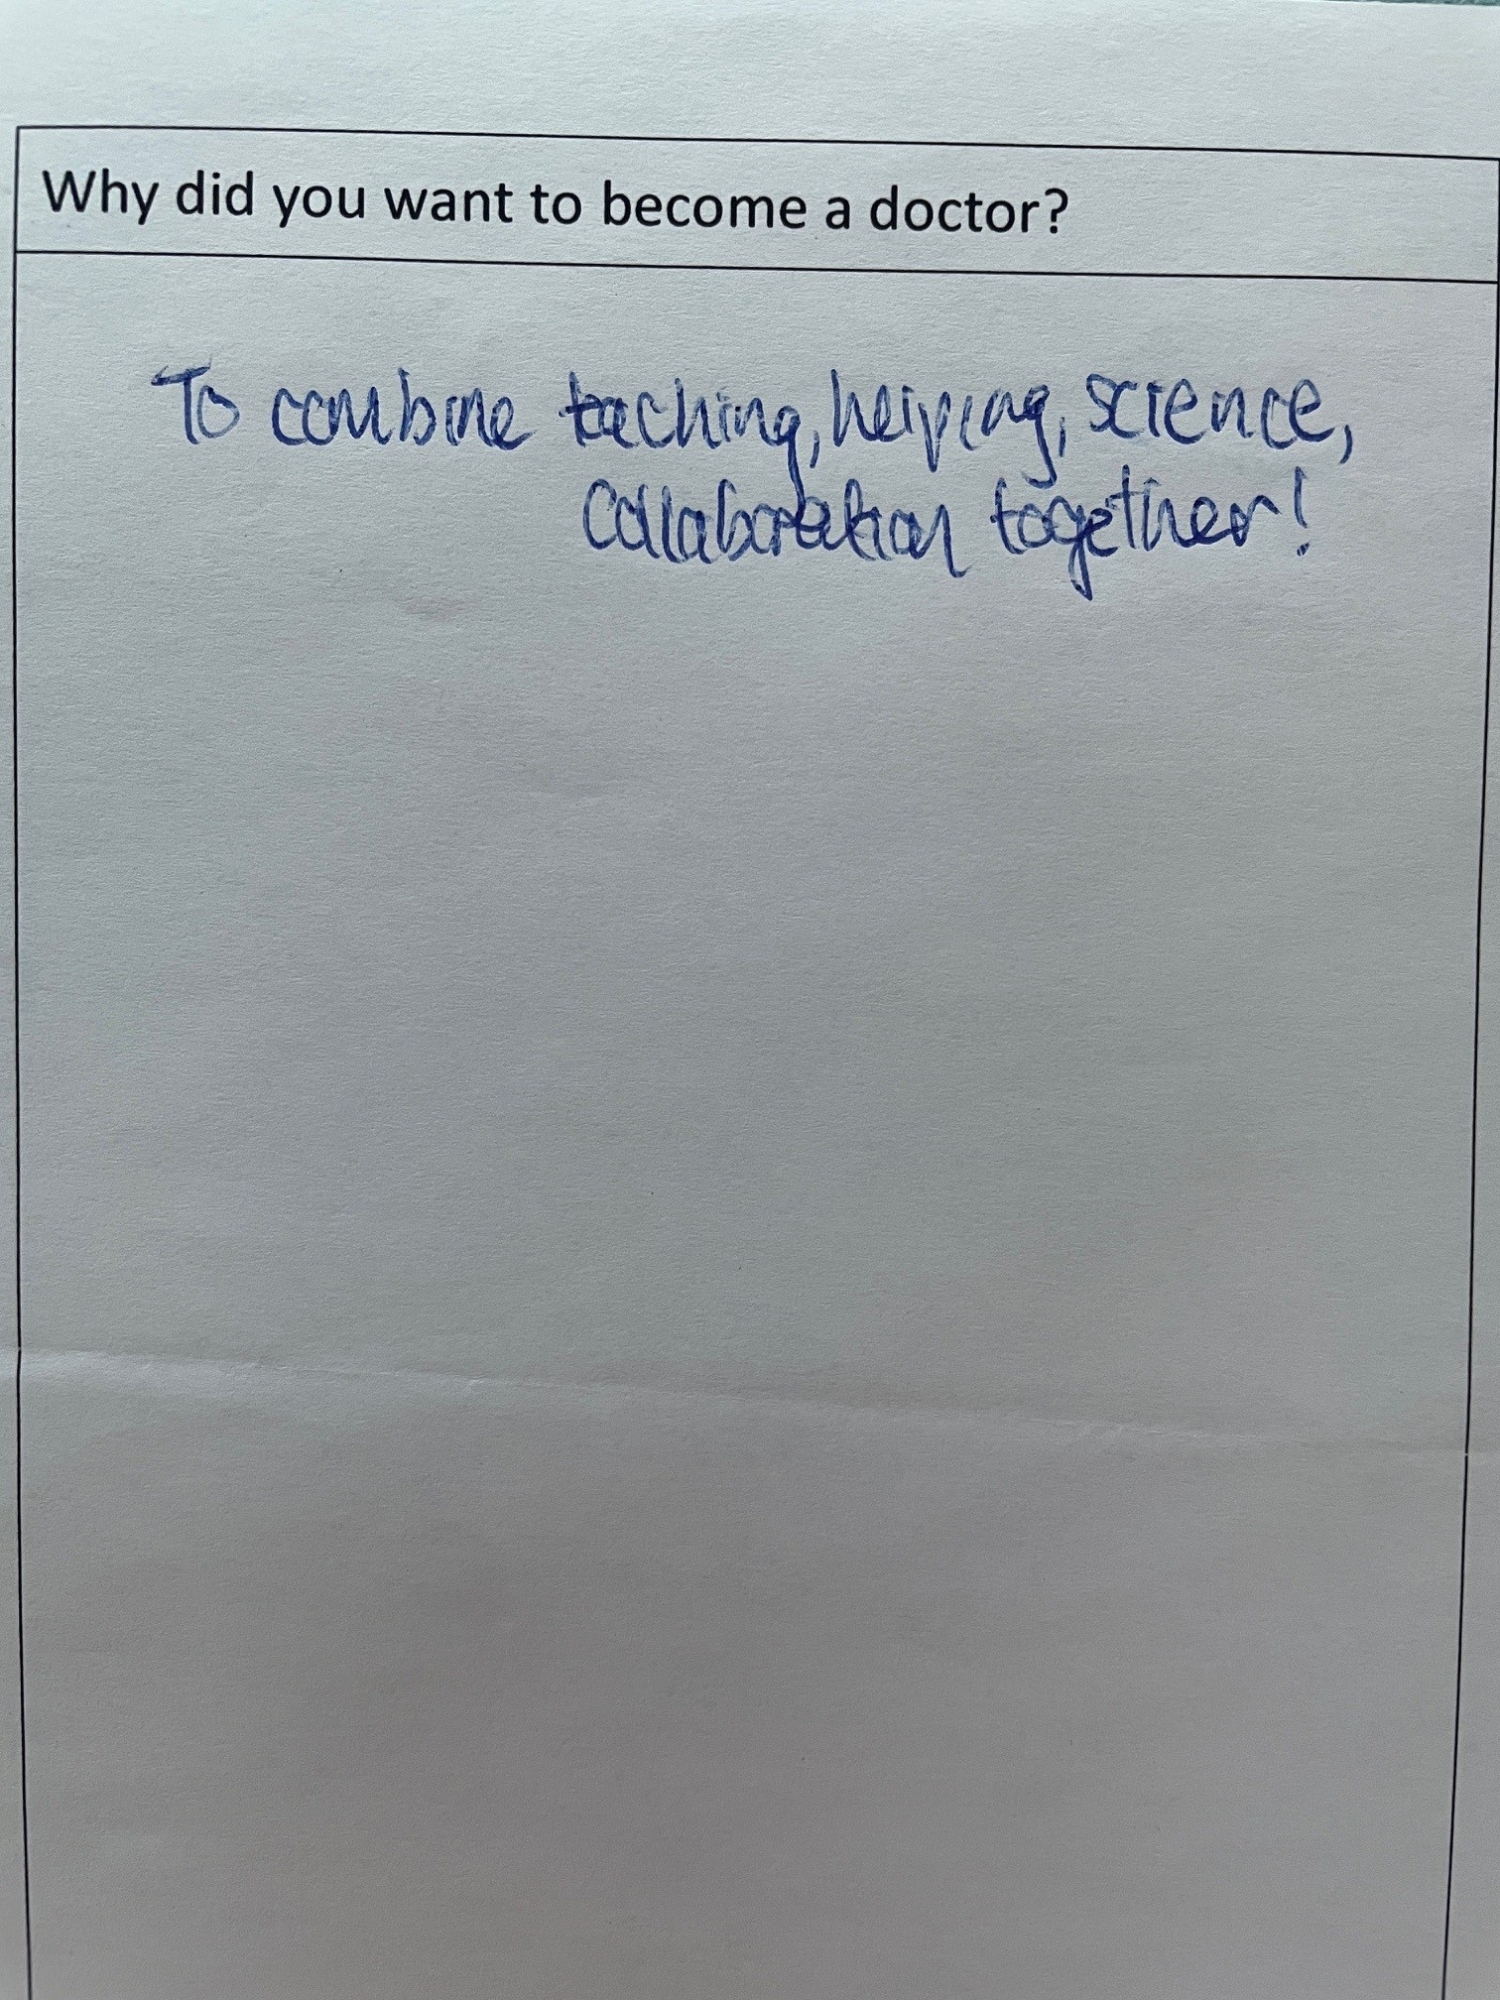 Why did you want to become a doctor?
To combine teaching, helping, science,
Collaboration together!